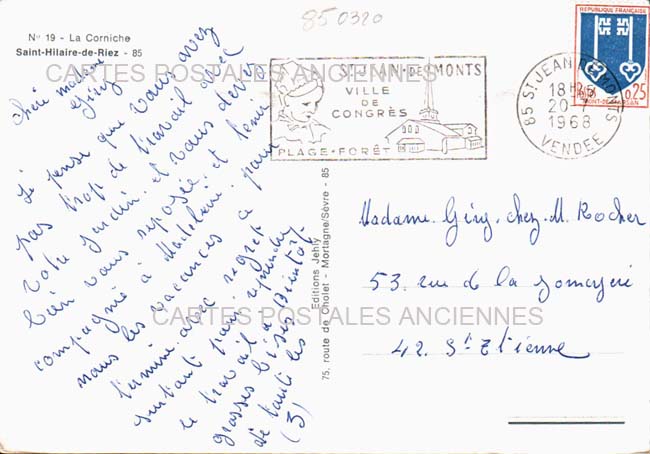 850320
N° 19 - La Corniche
Saint-Hilaire-de-Riez - 85
CARTES POSTALES ANCIENNES
ST JEAN-DE-MONTS
VILLE
DE
CONGRÈS
PLAGE-FORÊT
REPUBLIQUE FRANÇAISE
0,25
MONT-DE-MARSAN
85 ST JEAN DE MONTS
18H
20-7
1968
VENDEE
Chère madame
Giry
Je pense que vous avez
pas trop de travail avec
votre jardin. et vous devez
bien vous reposée et tenir
compagnie à Madeleine. pour
nous les vacances ce
termine avec regret
surtout pour reprendre
le travail a Bientôt
grosses bises
de touts les
(3)
Editions Jehly
75, route de Cholet - Mortagne/Sèvre - 85
Madame Giry chez M. Rocher
53. rue de la
42. St Etienne
CARTES POSTALES ANCIENNES